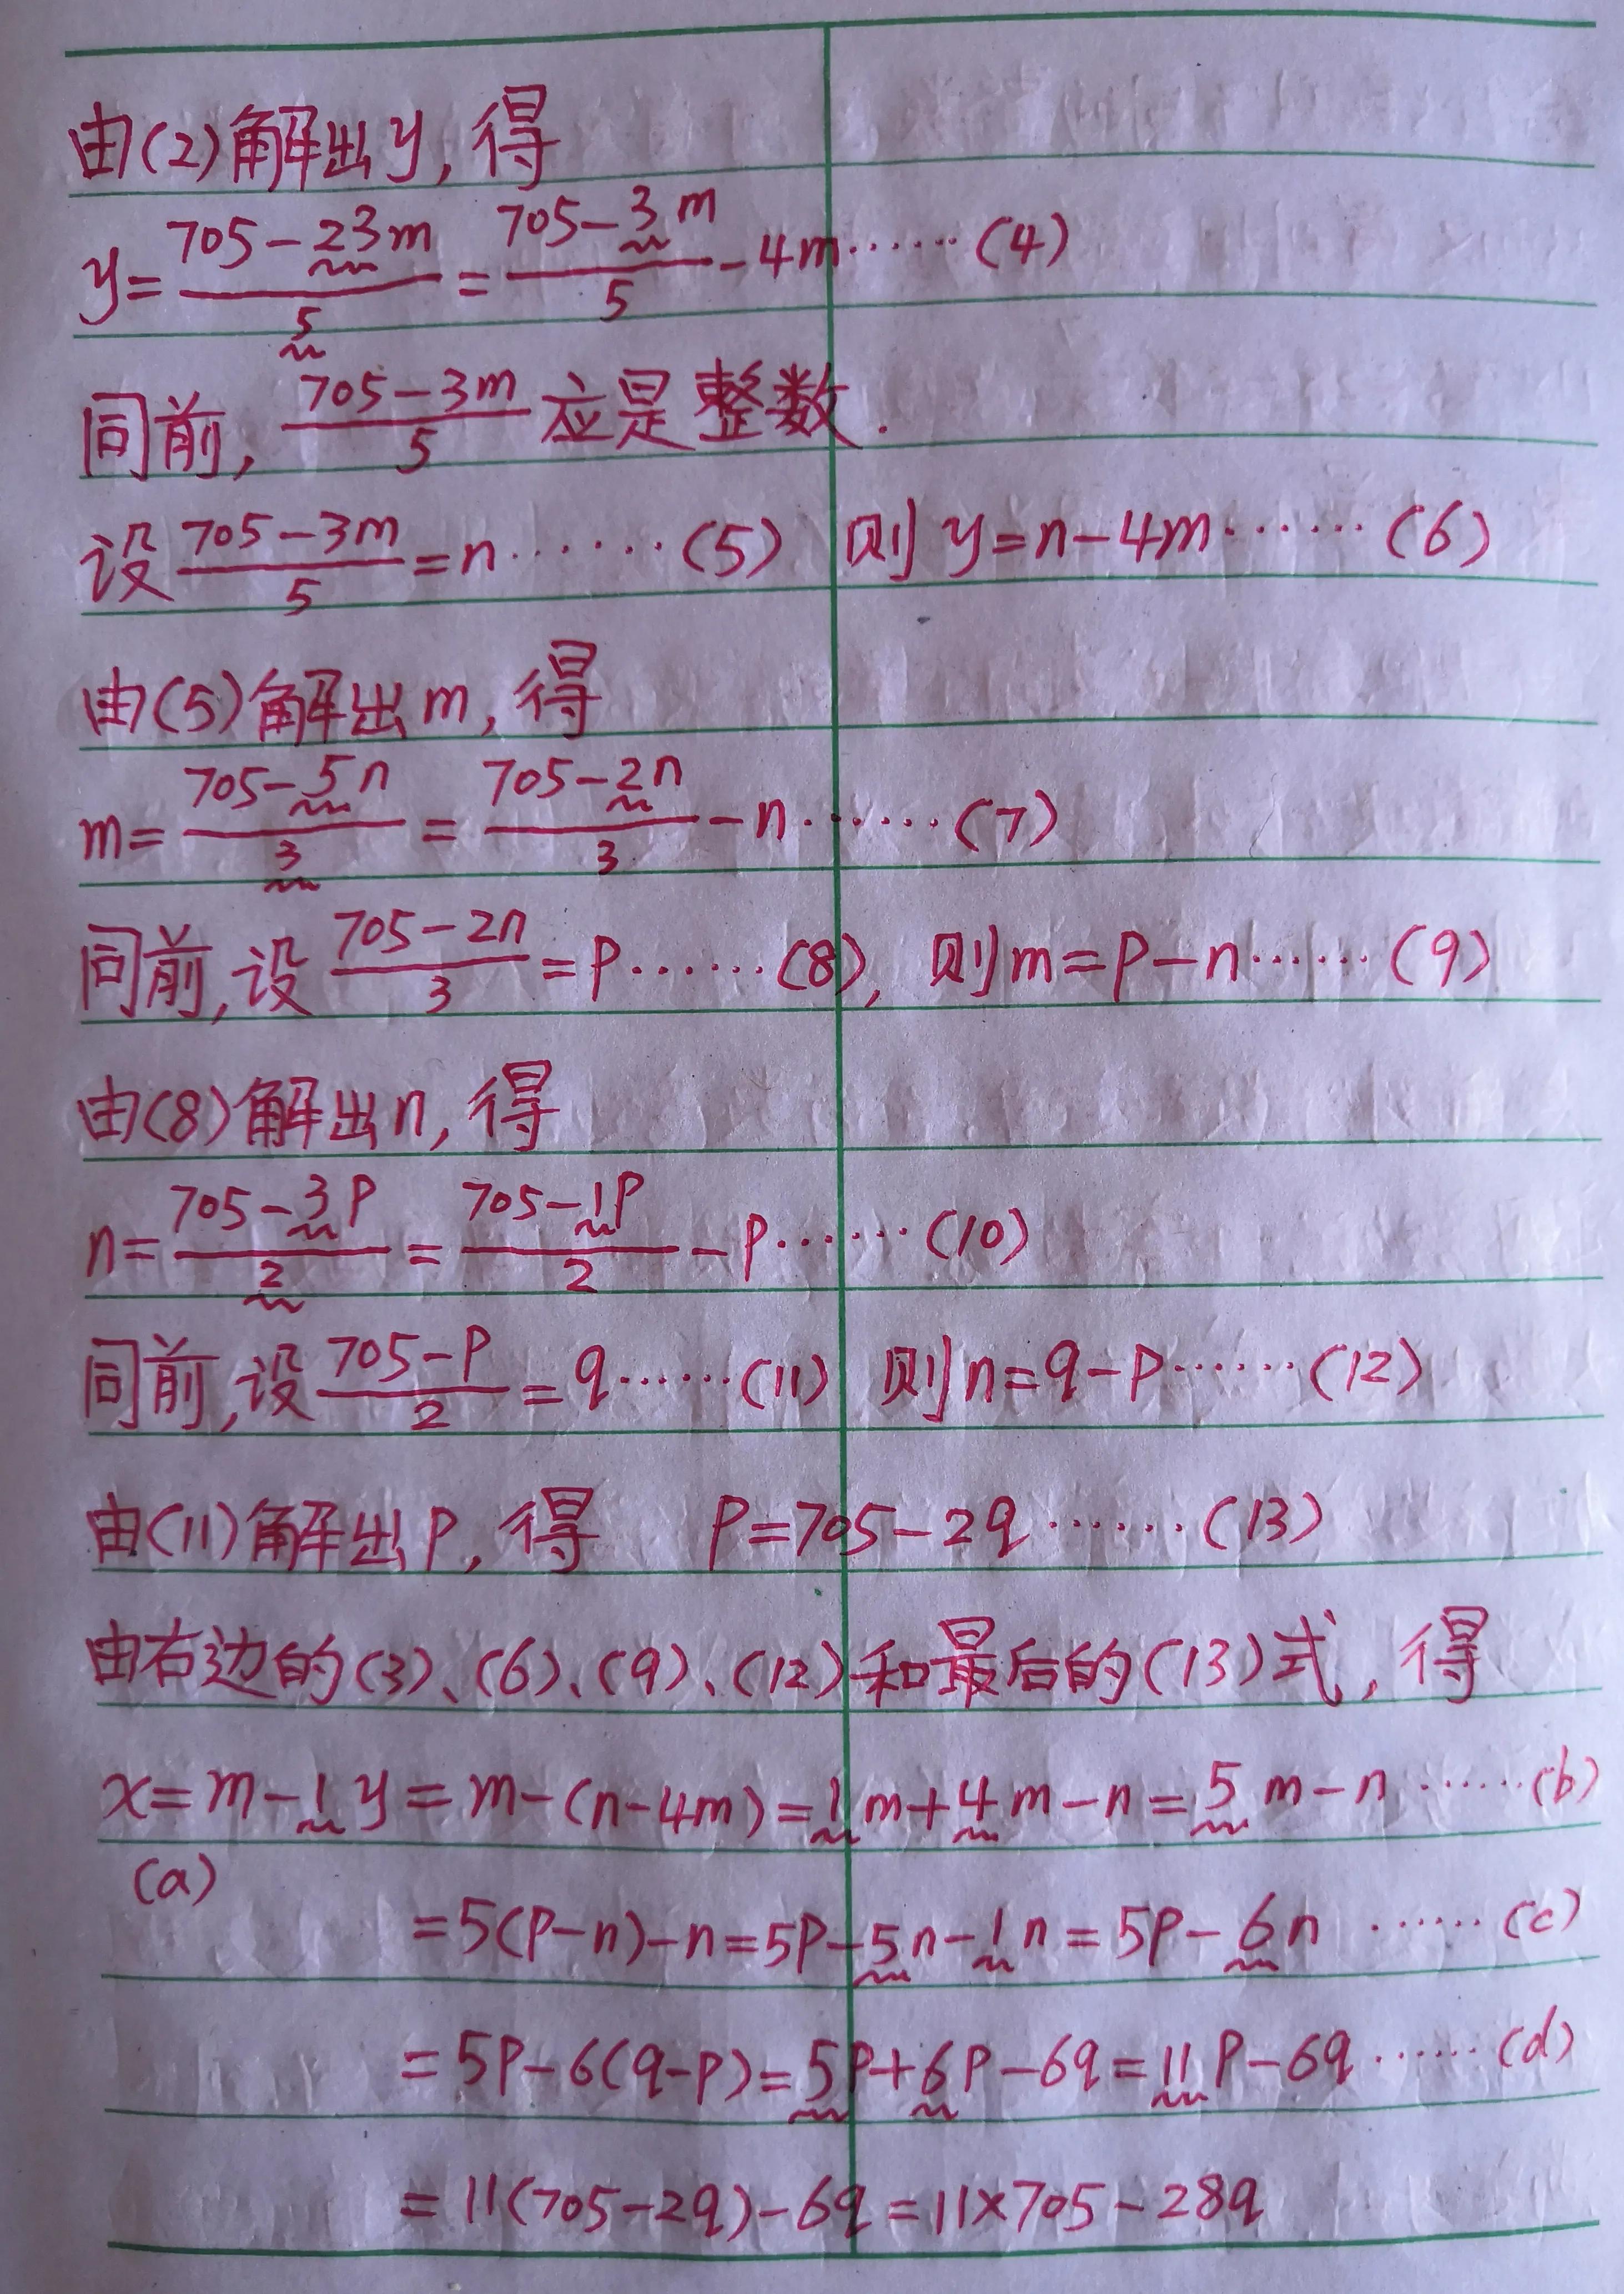 由(2)解出y,得
y=(705-23m)/5=(705-3m)/5-4m……(4)
同前,(705-3m)/5应是整数.
设(705-3m)/5=n……(5) 则y=n-4m……(6)
由(5)解出m,得
m=(705-5n)/3=(705-2n)/3-n……(7)
同前,设(705-2n)/3=p……(8),则m=p-n……(9)
由(8)解出n,得
n=(705-3p)/2=(705-1p)/2-p……(10)
同前,设(705-p)/2=q……(11) 则n=q-p……(12)
由(11)解出p,得 p=705-2q……(13)
由右边的(3)、(6)、(9)、(12)和最后的(13)式,得
x=m-1y=m-(n-4m)=1m+4m-n=5m-n……(b)
(a)
=5(p-n)-n=5p-5n-1n=5p-6n……(c)
=5p-6(q-p)=5p+6p-6q=11p-6q……(d)
=11(705-2q)-6q=11×705-28q